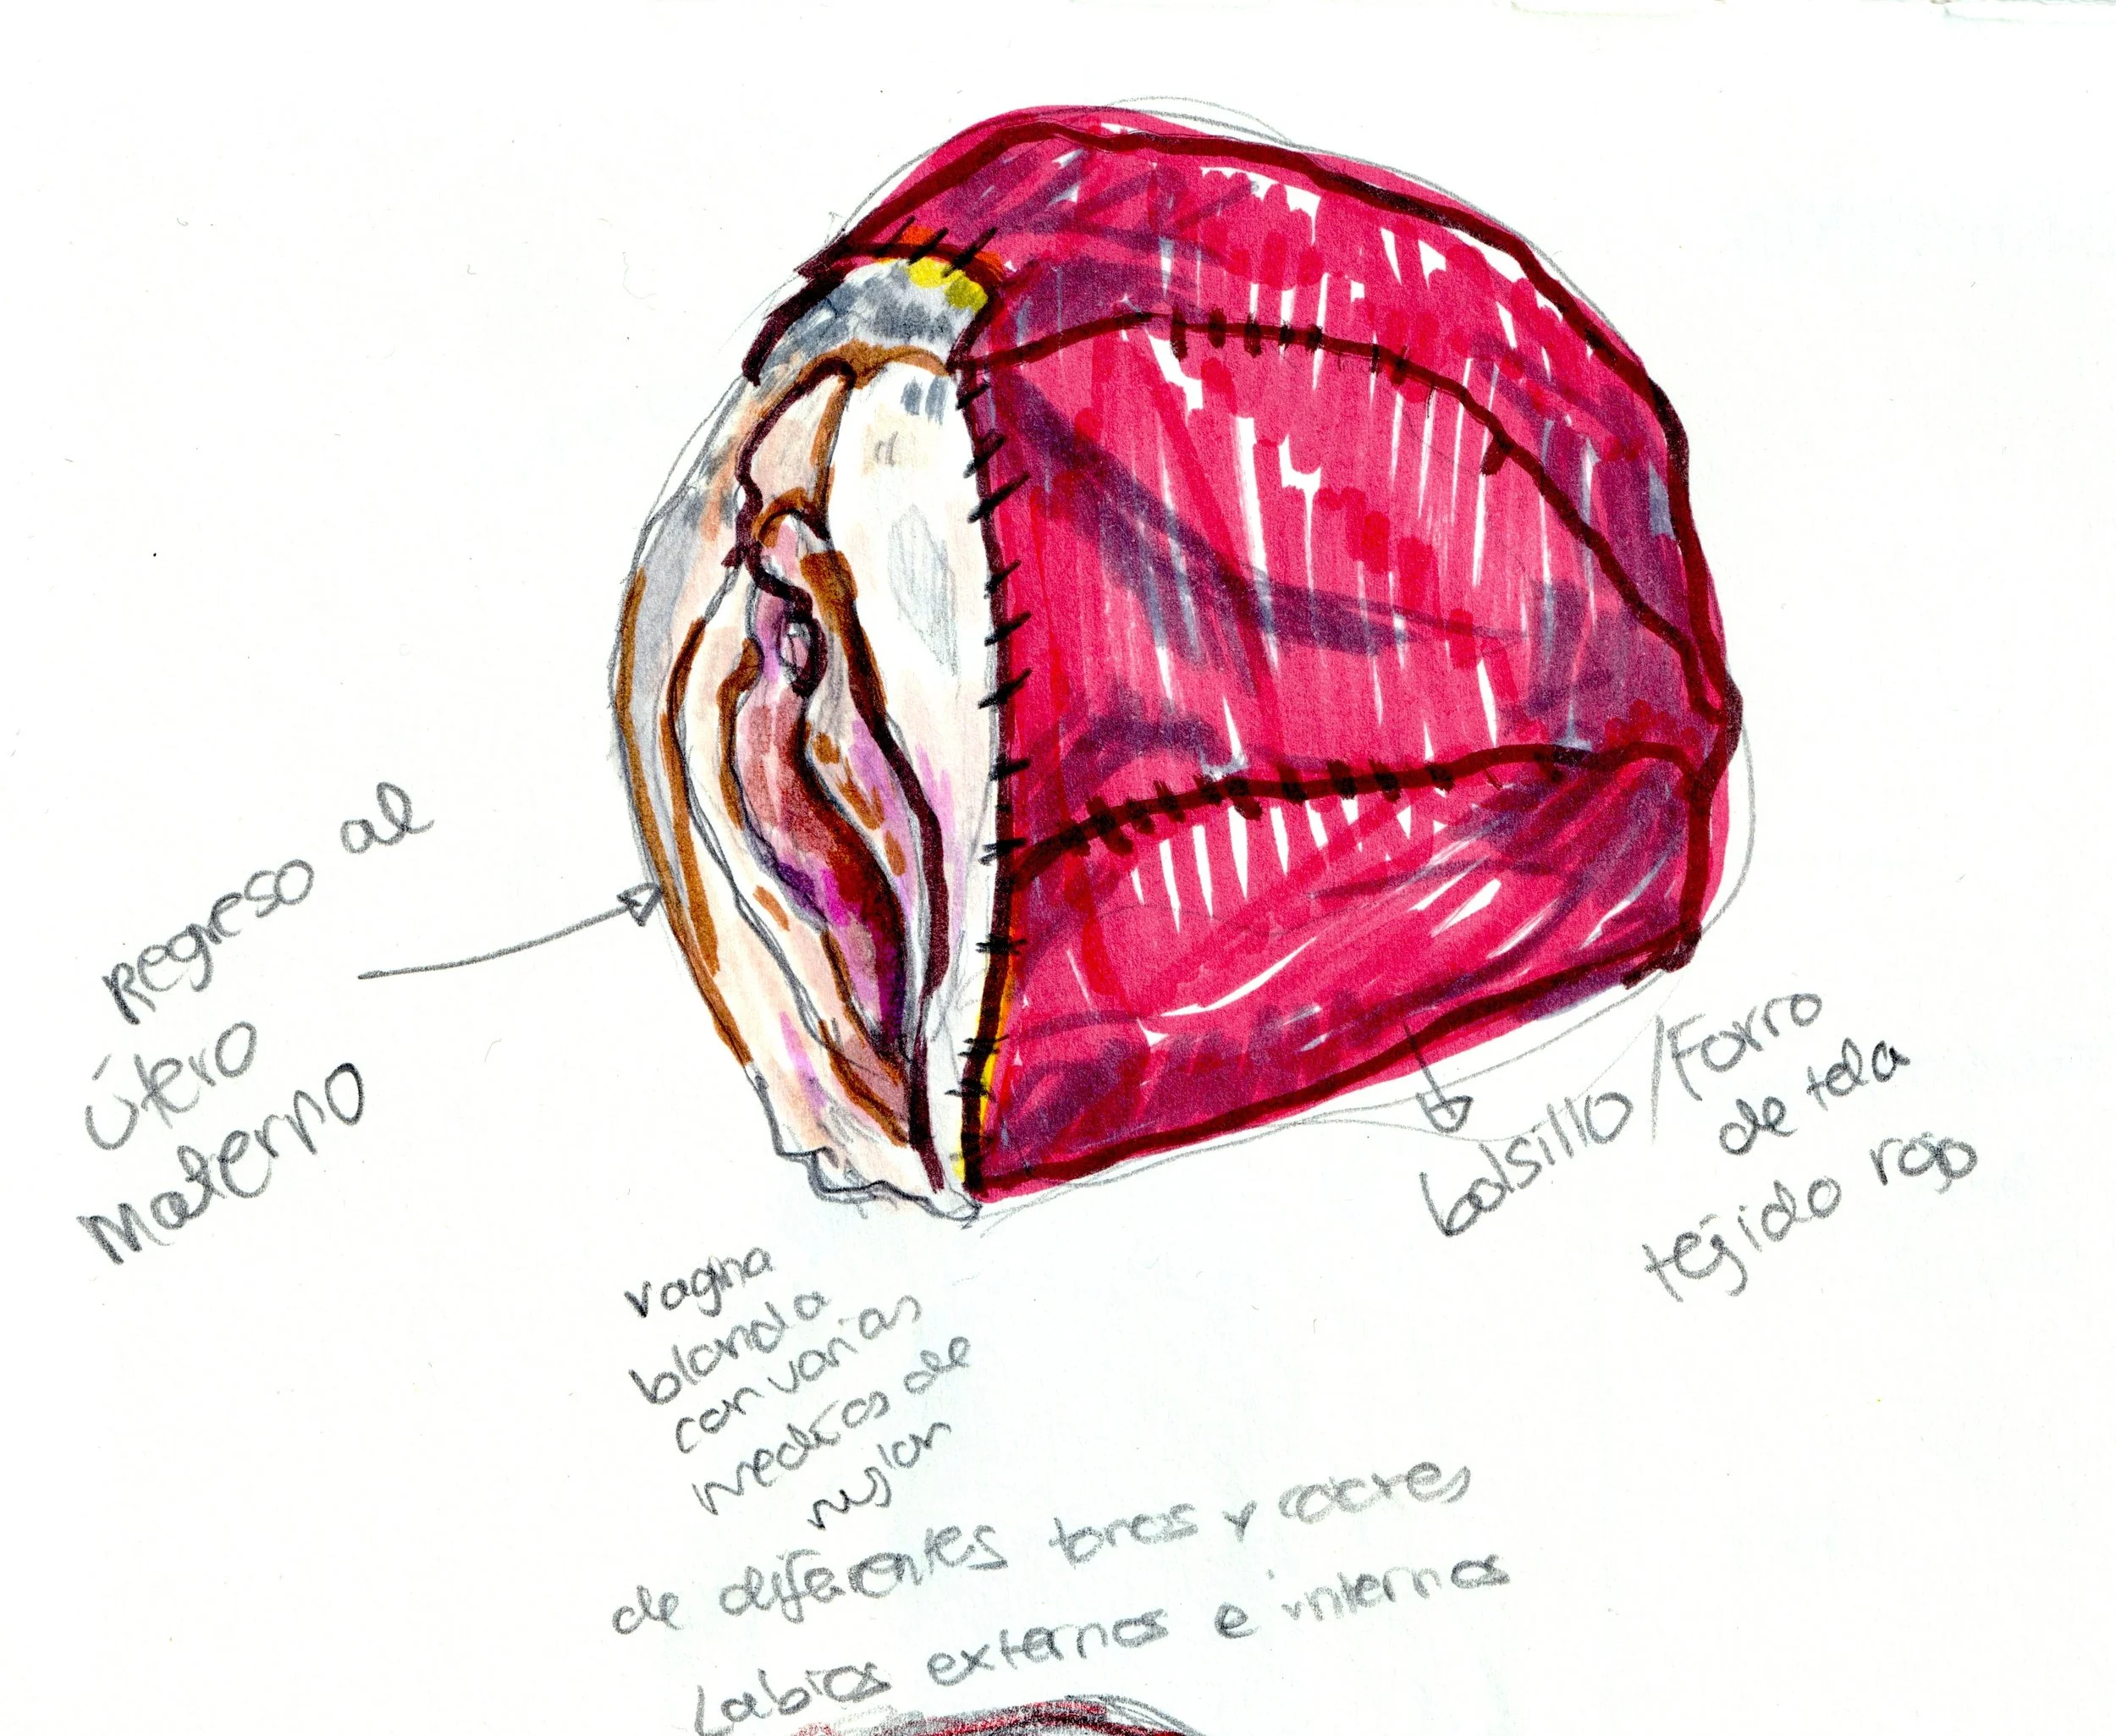 regreso al
útero
Materno
bolsillo/Forro
de tela
tejido rojo
vagina
blanda
con varias
medias de
nylon
de diferentes tonos y colores
Labios externos e internos